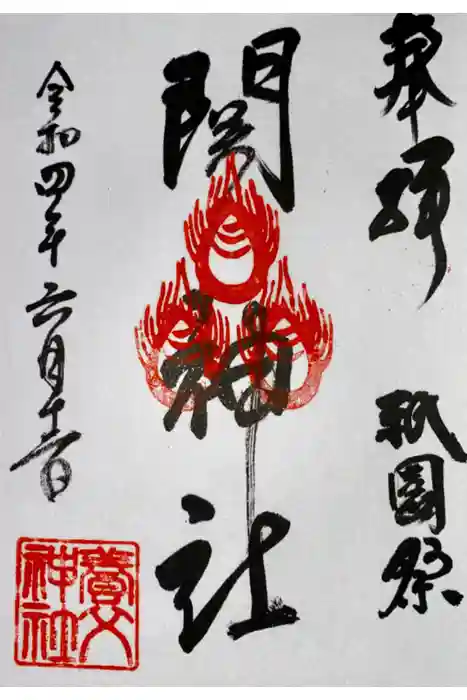 奉拝 祇園祭
関神社
令和四年六月十二日
神社